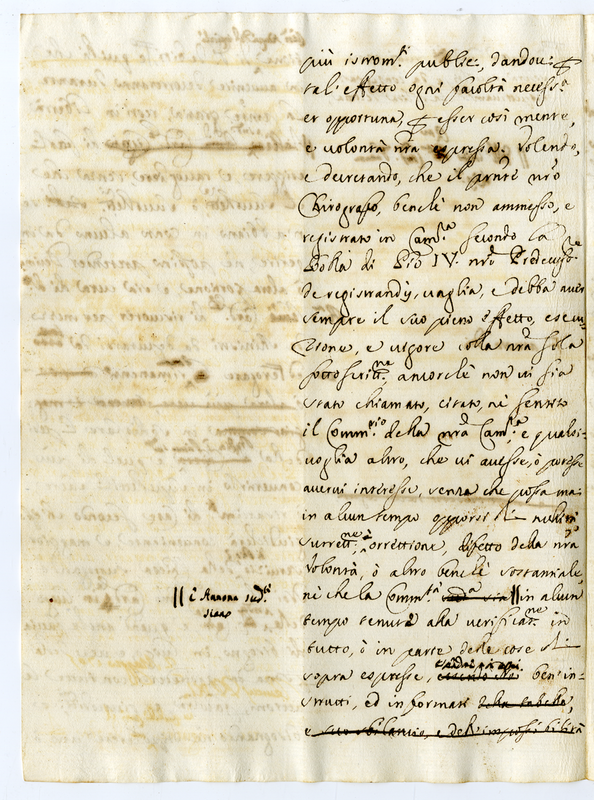 più istrom.ti publici, dandovi ꝑ
tal' effetto ogni facoltà necess.a
et opportuna, ꝑ esser così mente,
e volontà n͞ra espressa. Volendo,
e decretando, che il pr͞nte n͞ro
Chirografo, benchè non ammesso, e
registrato in Cam.ra secondo la
Bolla di Pio IV. n͞ro Predecess.re
de registrandis, vaglia, e debba aver
sempre il suo pieno effetto, esecu-
zione, e vigore colla n͞ra sola
sottoscritt.ne, ancorchè non vi sia
stato chiamato, citato, nè sentito
il Comm.rio della n͞ra Cam.ra e qualsi-
voglia altro, che vi avesse, ò potesse
avervi interesse, senza che possa mai
in alcun tempo opporsi di nullità
surrett.ne, ò orrettione, difetto della n͞ra
volontà, ò altro benchè sostanziale
nè che la Comm.tà || in alcun
|| e Annona sud.ti
siano
tempo tenuta alla verificat.ne in
tutto, ò in parte delle cose di
sopra espresse, ben in-
strutti, ed informati della tabella,
e suo sbilancio, e dell'impossibilità